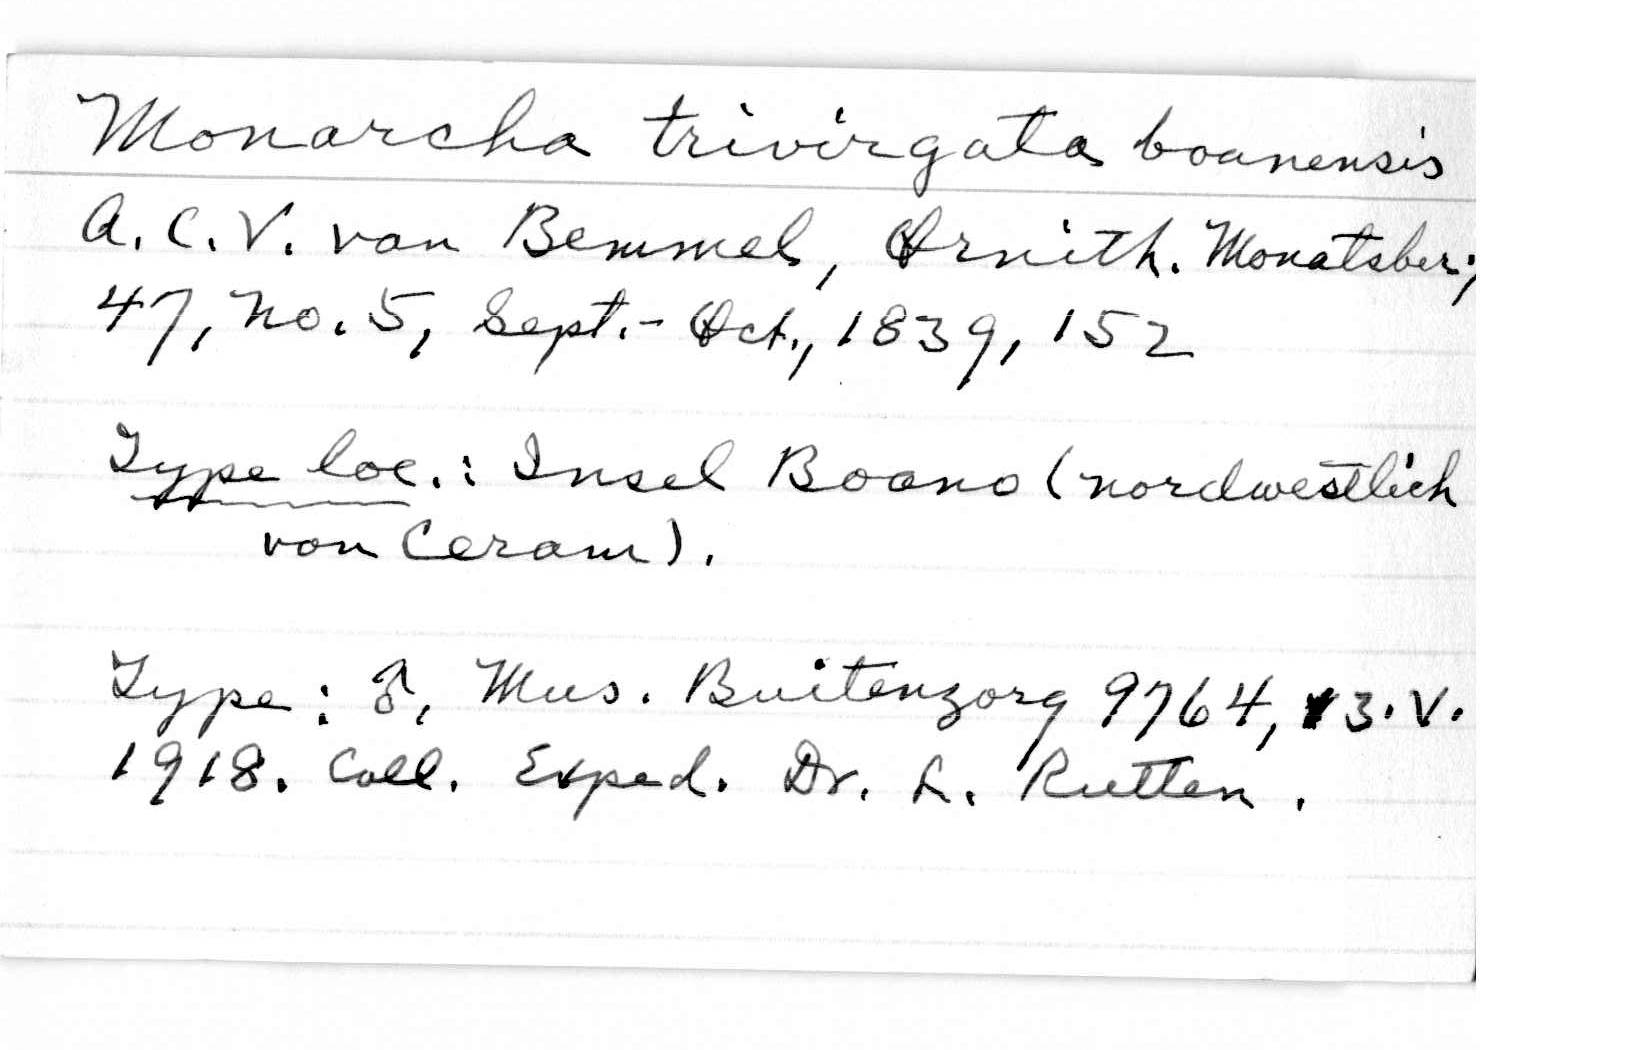 Monarcha trivirgata boanensis
A. C. V. van Bemmel, Ornith. Monatsber.,
47, no. 5, Sept.- Oct., 1839, 152
Type loc.: Insel Boano (nordwestlich
von Ceram).
Type: ♂, Mus. Buitenzorg 9764, 13.V.
1918. Coll. Exped. Dr. L. Rutten.